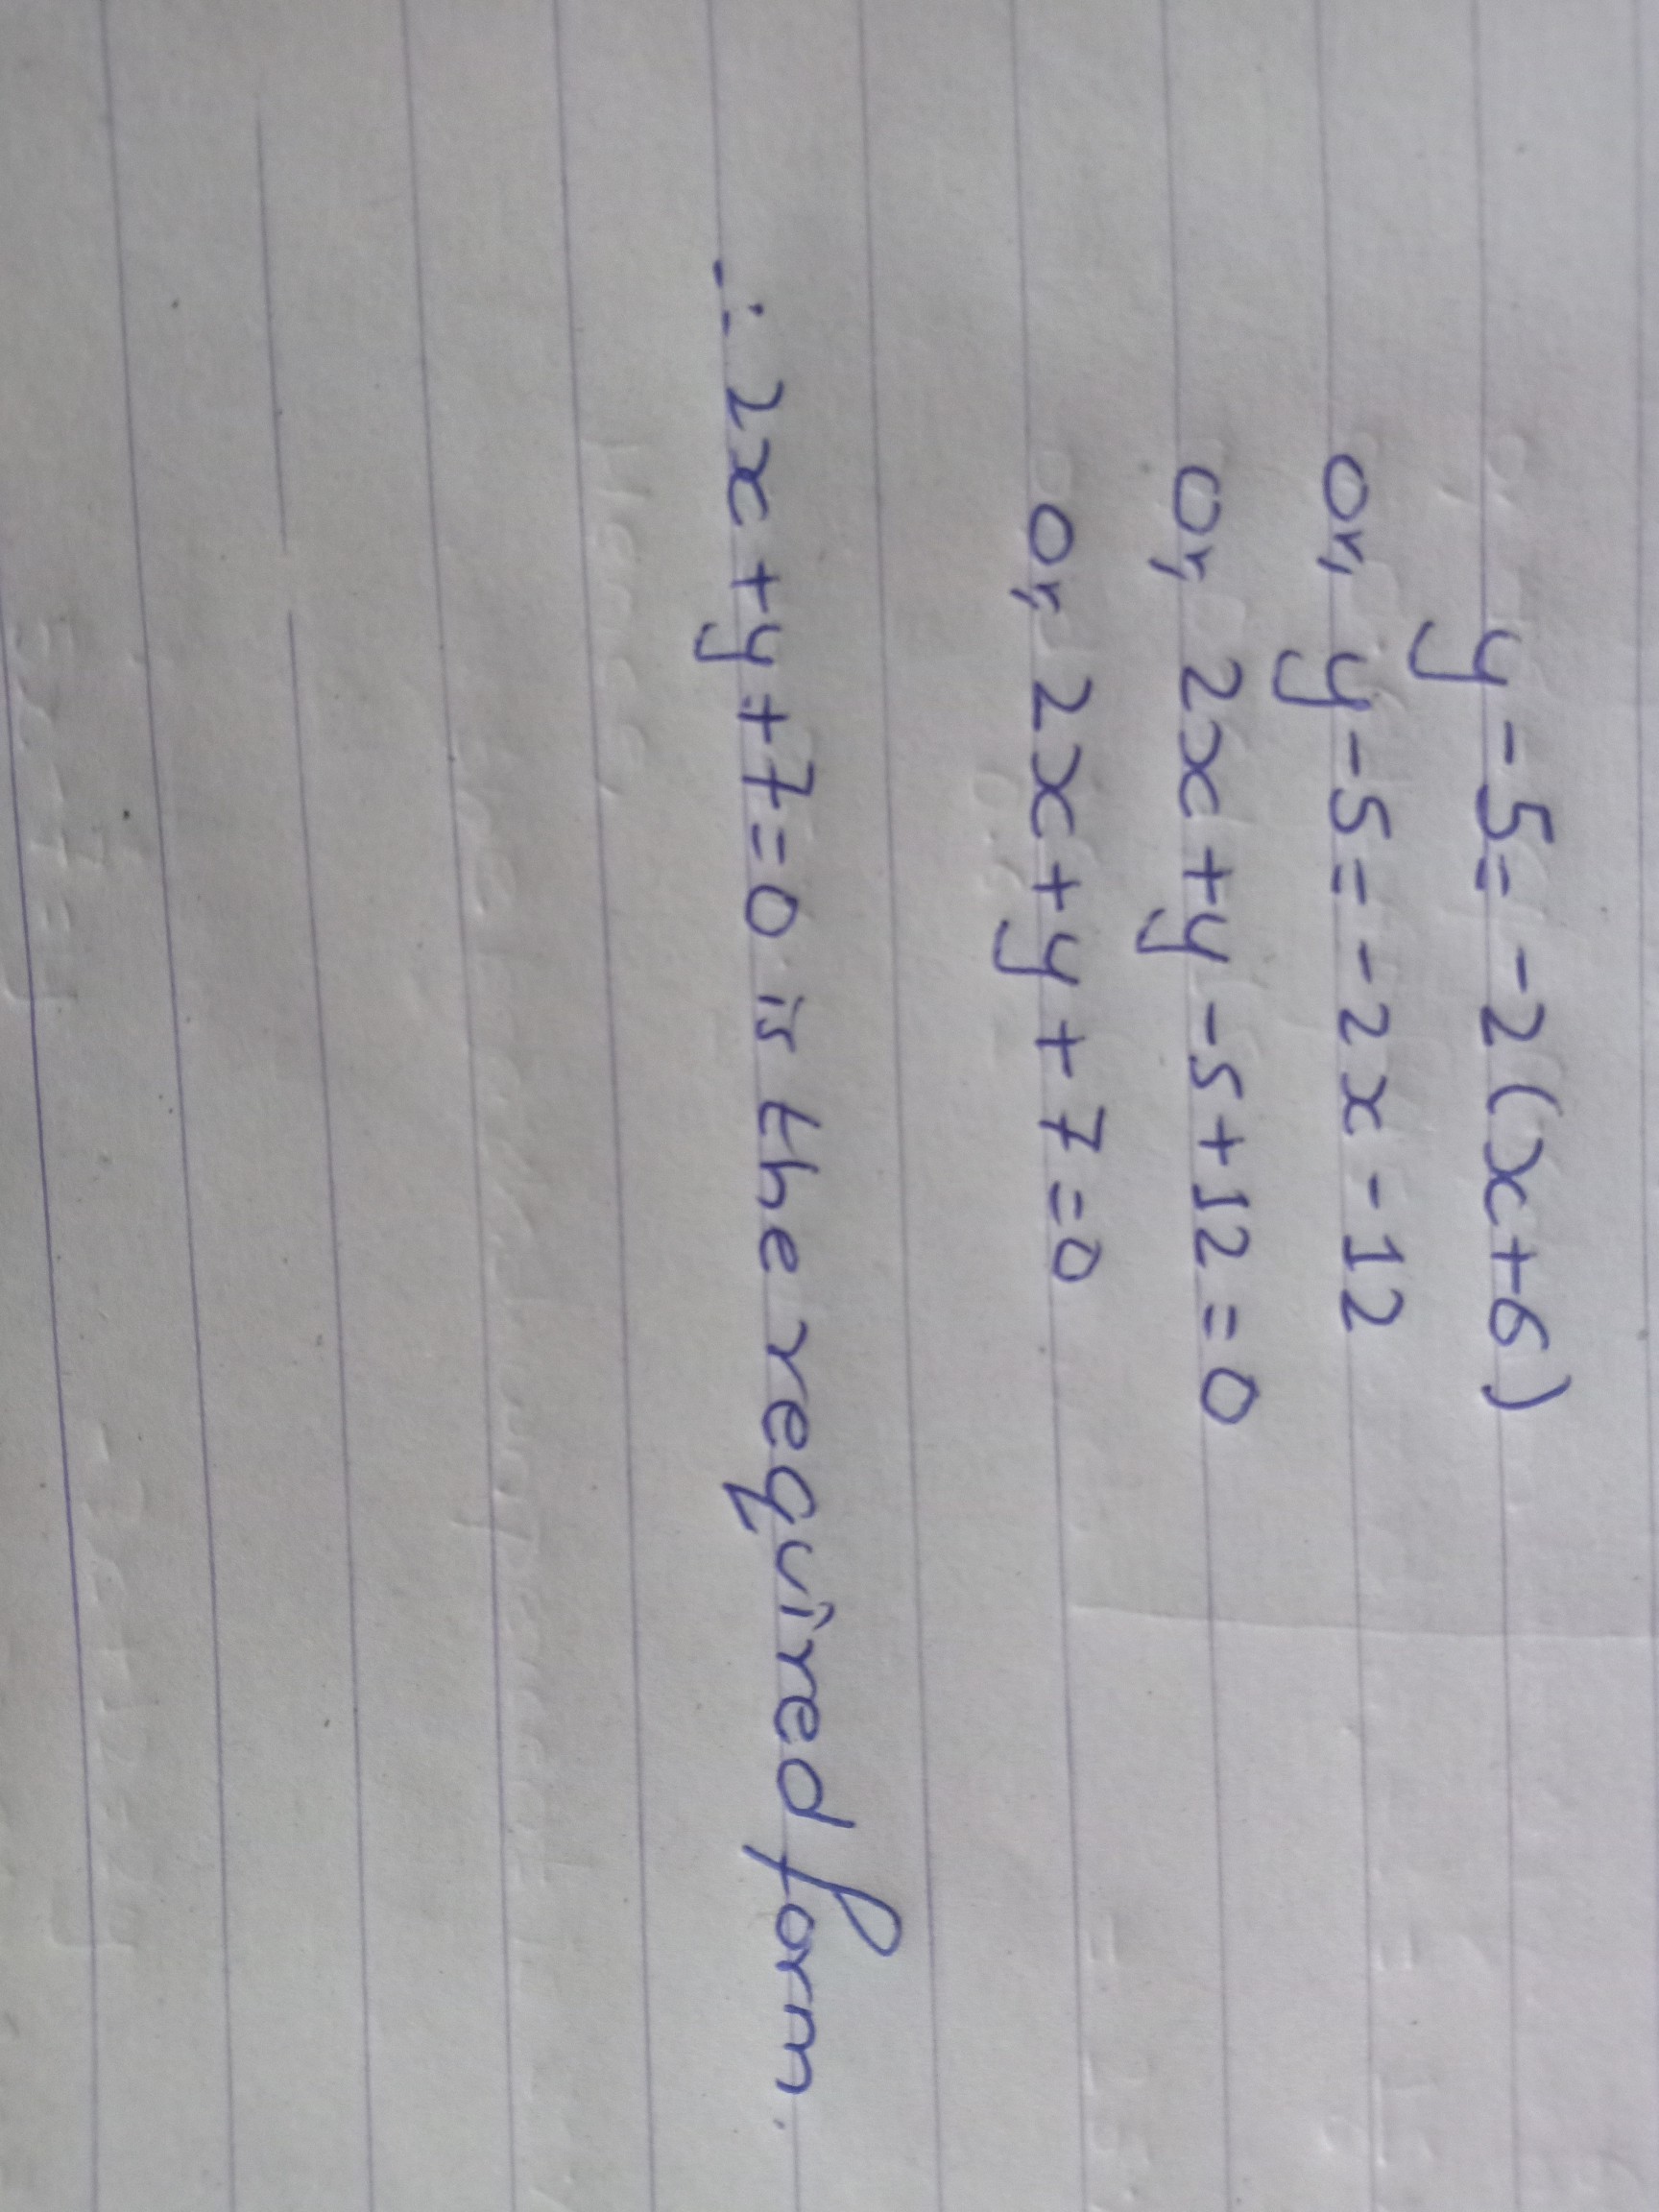 y-5=-2(x+6)
or, y-5=-2x-12
or, 2x+y-5+12=0
or, 2x+y+7=0
∴ 2x+y+7=0 is the required form.